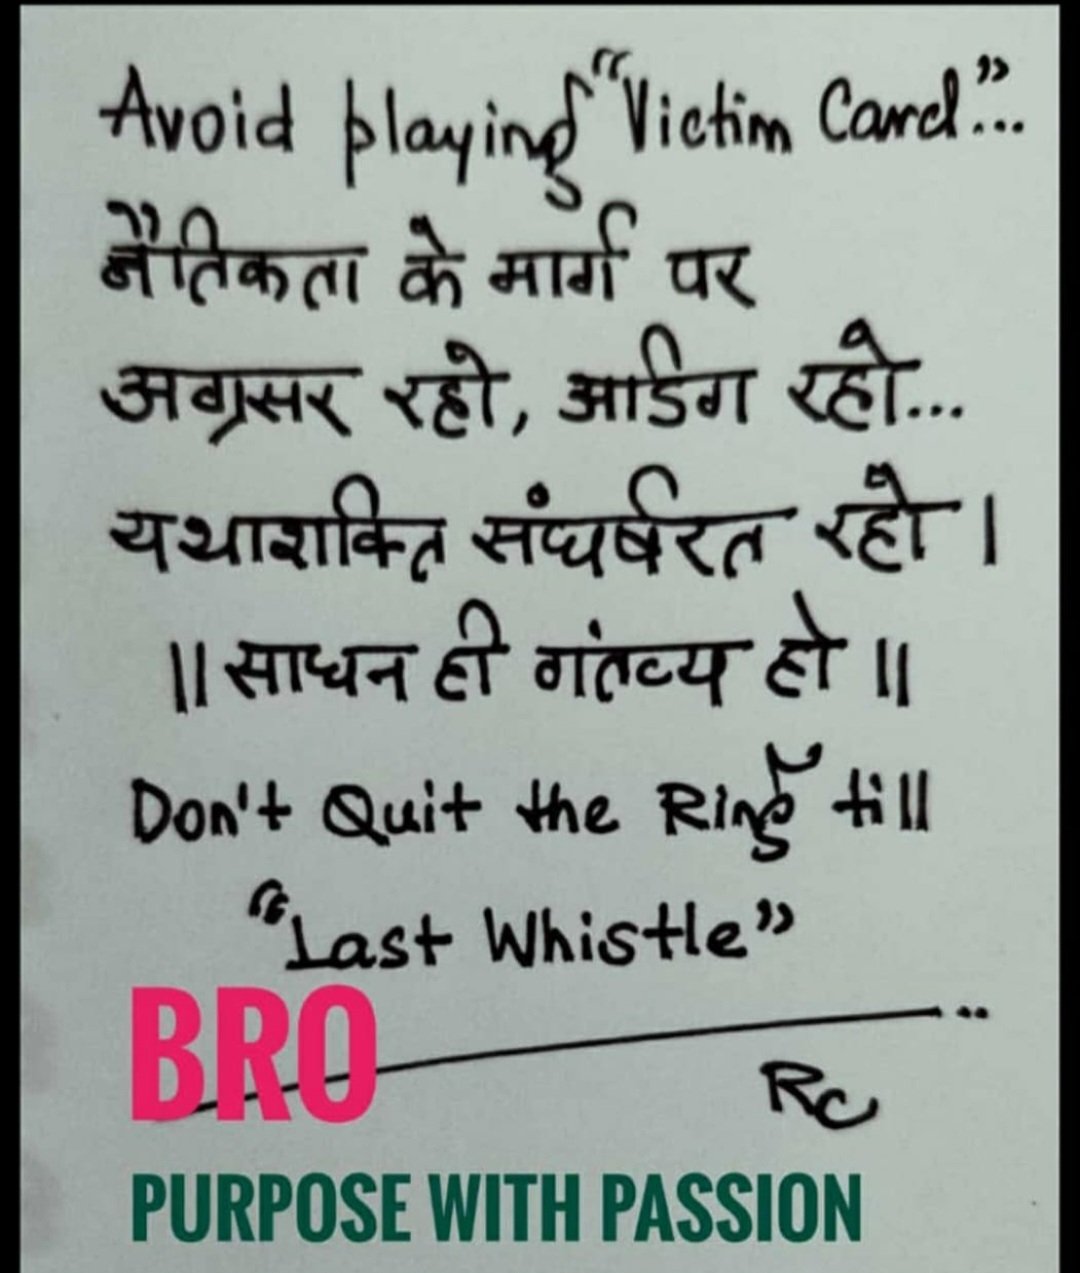 Avoid playing "Victim Card"...
नैतिकता के मार्ग पर
अग्रसर रहो, आडिग रहो...
यथाशक्ति संघर्षरत रहो।
॥ साधन ही गंतव्य हो ॥
Don't Quit the Ring till
"Last Whistle"
BRO
Rc
PURPOSE WITH PASSION